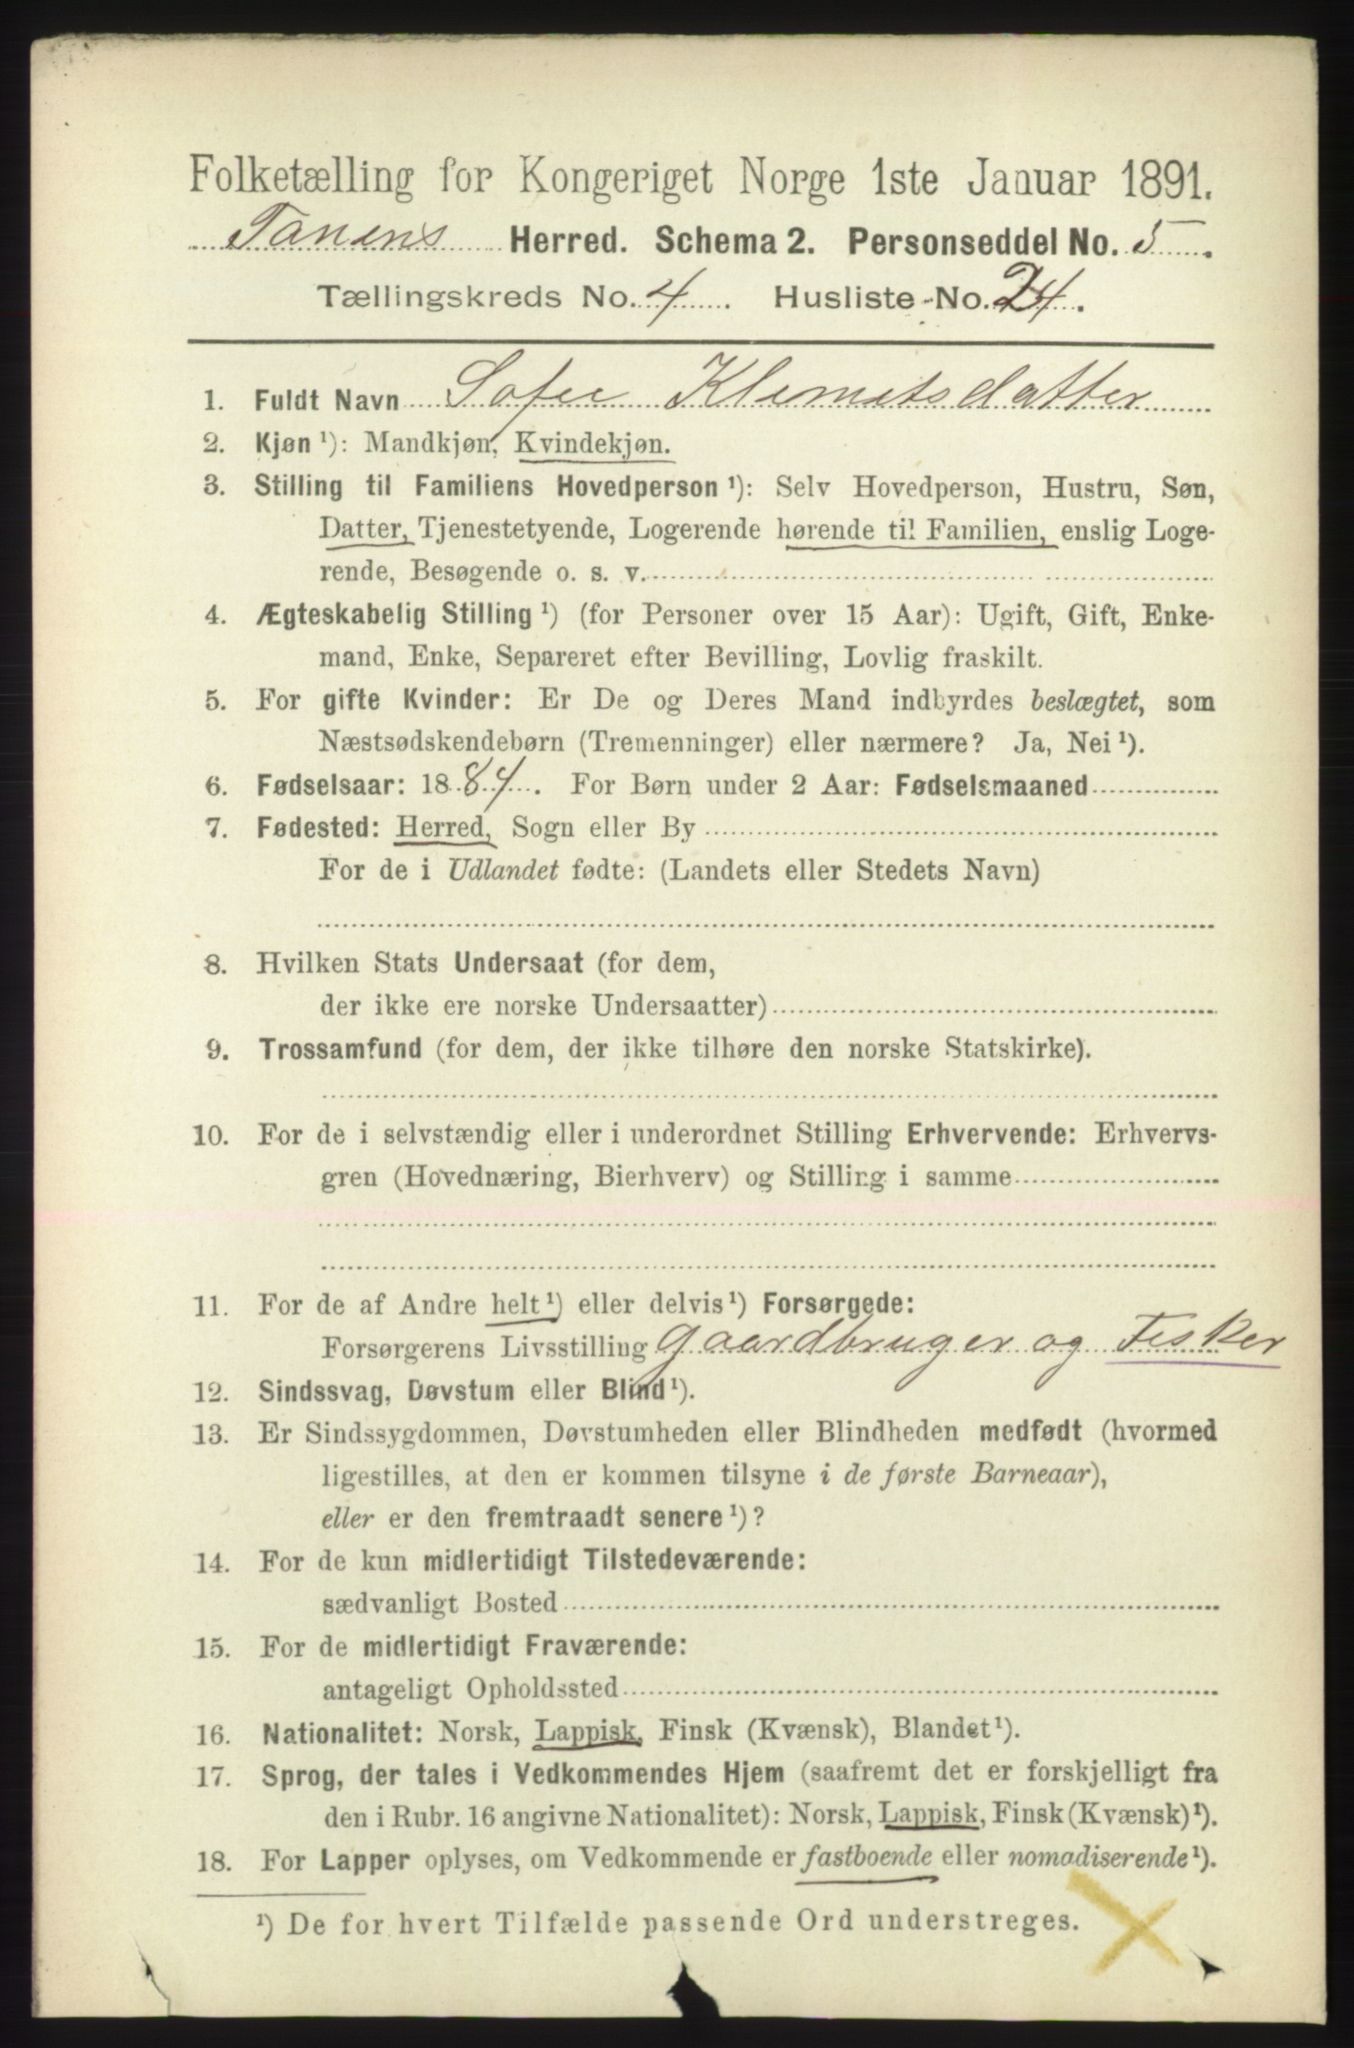 Folketælling for Kongeriget Norge 1ste Januar 1891.
Tanens Herred. Schema 2. Personseddel No. 5.
Tællingskreds No. 4. Husliste-No. 24.
1. Fuldt Navn Sofie Klemetsdatter
2. Kjøn ¹): Mandkjøn, Kvindekjøn.
3. Stilling til Familiens Hovedperson ¹): Selv Hovedperson, Hustru, Søn,
Datter, Tjenestetyende, Logerende hørende til Familien, enslig Loge-
rende, Besøgende o. s. v.
4. Ægteskabelig Stilling ¹) (for Personer over 15 Aar): Ugift, Gift, Enke-
mand, Enke, Separeret efter Bevilling, Lovlig fraskilt.
5. For gifte Kvinder: Er De og Deres Mand indbyrdes beslægtet, som
Næstsødskendebørn (Tremenninger) eller nærmere? Ja, Nei ¹).
6. Fødselsaar: 1884. For Børn under 2 Aar: Fødselsmaaned
7. Fødested: Herred, Sogn eller By
For de i Udlandet fødte: (Landets eller Stedets Navn)
8. Hvilken Stats Undersaat (for dem,
der ikke ere norske Undersaatter)
9. Trossamfund (for dem, der ikke tilhøre den norske Statskirke).
10. For de i selvstændig eller i underordnet Stilling Erhvervende: Erhvervs-
gren (Hovednæring, Bierhverv) og Stilling i samme
11. For de af Andre helt ¹) eller delvis ¹) Forsørgede:
Forsørgerens Livsstilling Gaardbruger og Fisker
12. Sindssvag, Døvstum eller Blind ¹).
13. Er Sindssygdommen, Døvstumheden eller Blindheden medfødt (hvormed
ligestilles, at den er kommen tilsyne i de første Barneaar),
eller er den fremtraadt senere ¹)?
14. For de kun midlertidigt Tilstedeværende:
sædvanligt Bosted
15. For de midlertidigt Fraværende:
antageligt Opholdssted
16. Nationalitet: Norsk, Lappisk, Finsk (Kvænsk), Blandet ¹).
17. Sprog, der tales i Vedkommendes Hjem (saafremt det er forskjelligt fra
den i Rubr. 16 angivne Nationalitet): Norsk, Lappisk, Finsk (Kvænsk) ¹).
18. For Lapper oplyses, om Vedkommende er fastboende eller nomadiserende ¹).
¹) De for hvert Tilfælde passende Ord understreges.